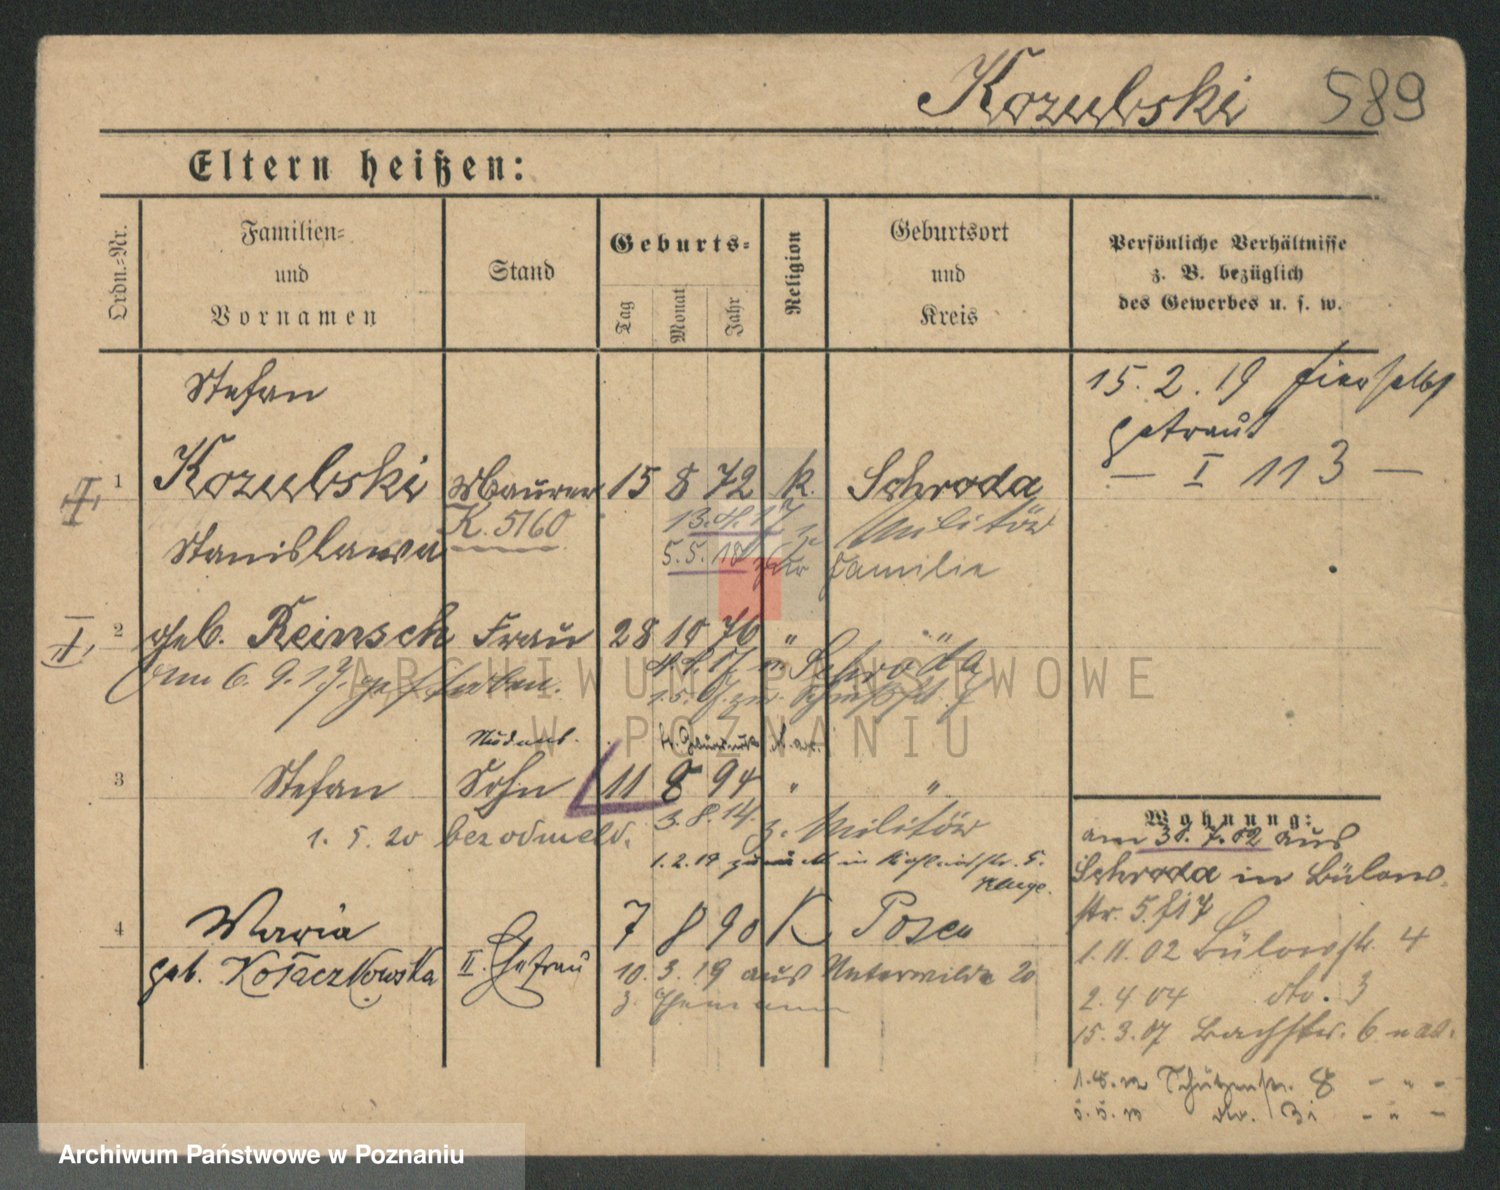 Kozubski 589
Eltern heißen:
Ordn.-Nr.
Familien-
und
Vornamen
Stand
Geburts-
Tag
Monat
Jahr
Religion
Geburtsort
und
Kreis
Persönliche Verhältnisse
z. B. bezüglich
des Gewerbes u. s. w.
Stefan
15. 2. 19 hierselbst
getraut
— I 113 —
II 1 Kozubski Maurer 15 8 72 k. Schroda
K. 5160
13. 4. 17 z. Militär
Stanislawa
5. 5. 18 zur Familie
I. 2 geb. Reinsch Frau 28 10 76 " "
Schroda
am 6. 9. 17. gestorben.
3 Stefan Sohn 11 8 94 " "
3. 8. 14. z. Militär
1. 5. 20 bes odmeld.
1. 2. 19 zurück
4 Maria 7 8 90 K Posen
geb. Kołaczkowska II. Ehefrau
10. 3. 19 aus Unterwilda 20
z. Ehemann
Wohnung:
am 30. 7. 02 aus
Schroda in Bülow-
str. 5.
1. 11. 02 Bülowstr. 4
2. 4 04 do. 3
15. 3. 07 Bachstr. 6
Schützenstr. 8 - " -
do. - " -
ARCHIWUM PAŃSTWOWE
W POZNANIU
Archiwum Państwowe w Poznaniu